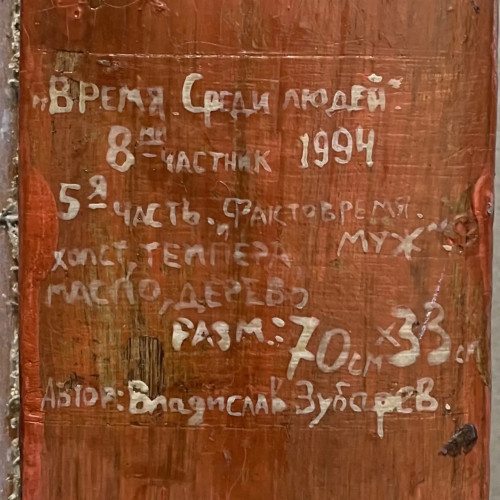 "Время. Среди людей".
8МИ-частник 1994
5Я часть. Фактовремя.
"Муж"
холст, темпера
масло, дерево
разм.: 70см х 33см
Автор: Владислав Зубарев.